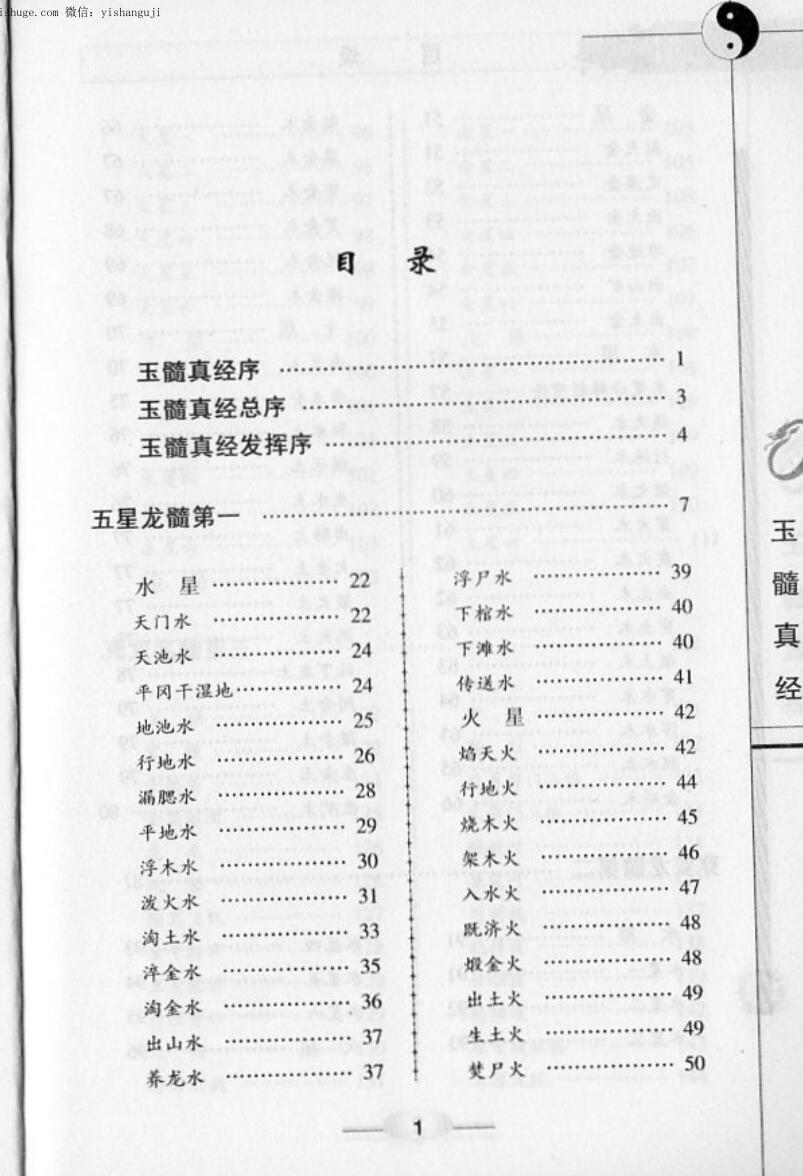 ishuge.com 微信：yishanguji
目 录
玉髓真经序 …………………… 1
玉髓真经总序 …………………… 3
玉髓真经发挥序 …………………… 4
五星龙髓第一 …………………… 7
水 星 ………… 22
天门水 ………… 22
天池水 ………… 24
平冈干湿地 ………… 24
地池水 ………… 25
行地水 ………… 26
漏腮水 ………… 28
平地水 ………… 29
浮木水 ………… 30
泼火水 ………… 31
淘土水 ………… 33
淬金水 ………… 35
淘金水 ………… 36
出山水 ………… 37
养龙水 ………… 37
浮尸水 ………… 39
下棺水 ………… 40
下滩水 ………… 40
传送水 ………… 41
火 星 ………… 42
焰天火 ………… 42
行地火 ………… 44
烧木火 ………… 45
架木火 ………… 46
入水火 ………… 47
既济火 ………… 48
煅金火 ………… 48
出土火 ………… 49
生土火 ………… 49
焚尸火 ………… 50
玉髓真经
1